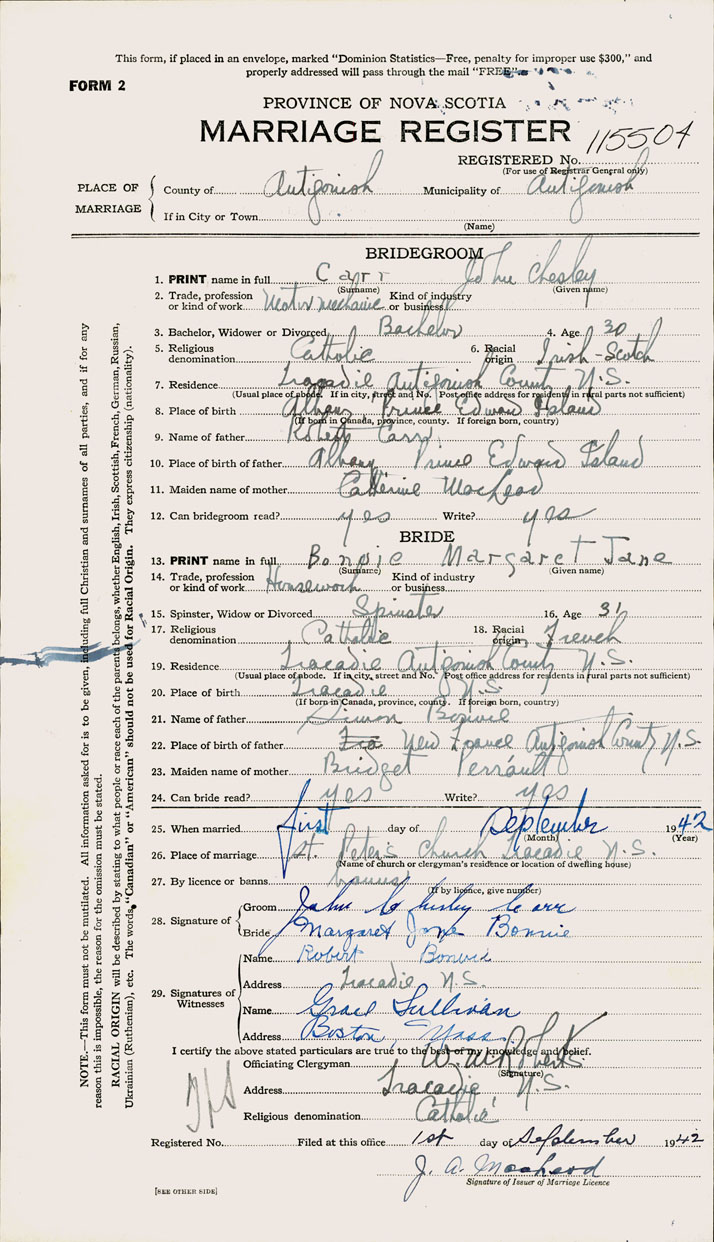 This form, if placed in an envelope, marked "Dominion Statistics—Free, penalty for improper use $300," and
properly addressed will pass through the mail "FREE"
FORM 2
PROVINCE OF NOVA SCOTIA
MARRIAGE REGISTER
115504
REGISTERED No.
(For use of Registrar General only)
PLACE OF MARRIAGE
County of Antigonish Municipality of Antigonish
If in City or Town
(Name)
BRIDEGROOM
1. PRINT name in full Carr John Chesley
(Surname) (Given name)
2. Trade, profession or kind of work Motor mechanic Kind of industry or business
3. Bachelor, Widower or Divorced Bachelor 4. Age 30
5. Religious denomination Catholic 6. Racial origin Irish-Scotch
7. Residence Tracadie Antigonish County N.S.
(Usual place of abode. If in city, street and No. Post office address for residents in rural parts not sufficient)
8. Place of birth Albany Prince Edward Island
(If born in Canada, province, county. If foreign born, country)
9. Name of father Robert Carr
10. Place of birth of father Albany Prince Edward Island
11. Maiden name of mother Catherine MacLeod
12. Can bridegroom read? yes Write? yes
BRIDE
13. PRINT name in full Bonnie Margaret Jane
(Surname) (Given name)
14. Trade, profession or kind of work Housework Kind of industry or business
15. Spinster, Widow or Divorced Spinster 16. Age 31
17. Religious denomination Catholic 18. Racial origin French
19. Residence Tracadie Antigonish County N.S.
(Usual place of abode. If in city, street and No. Post office address for residents in rural parts not sufficient)
20. Place of birth Tracadie N.S.
(If born in Canada, province, county. If foreign born, country)
21. Name of father Simon Bonvie
22. Place of birth of father New France Antigonish County N.S.
23. Maiden name of mother Bridget Perrault
24. Can bride read? yes Write? yes
25. When married first day of September 1942
(Month) (Year)
26. Place of marriage St. Peter's Church Tracadie N.S.
(Name of church or clergyman's residence or location of dwelling house)
27. By licence or banns banns
(If by licence, give number)
28. Signature of
Groom John Chesley Carr
Bride Margaret Jane Bonnie
29. Signatures of Witnesses
Name Robert Bonvie
Address Tracadie N.S.
Name Grace Sullivan
Address Boston, Mass.
I certify the above stated particulars are true to the best of my knowledge and belief.
Officiating Clergyman Roberts
(Signature)
Address Tracadie, N.S.
Religious denomination Catholic
Registered No. Filed at this office 1st day of September 1942
J. A. MacLeod
Signature of Issuer of Marriage Licence
[SEE OTHER SIDE]
NOTE.—This form must not be mutilated. All information asked for is to be given, including full Christian and surnames of all parties, and if for any
reason this is impossible, the reason for the omission must be stated.
RACIAL ORIGIN will be described by stating to what people or race each of the parents belongs, whether English, Irish, Scottish, French, German, Russian,
Ukrainian (Ruthenian), etc. The words "Canadian" or "American" should not be used for Racial Origin. They express citizenship (nationality).